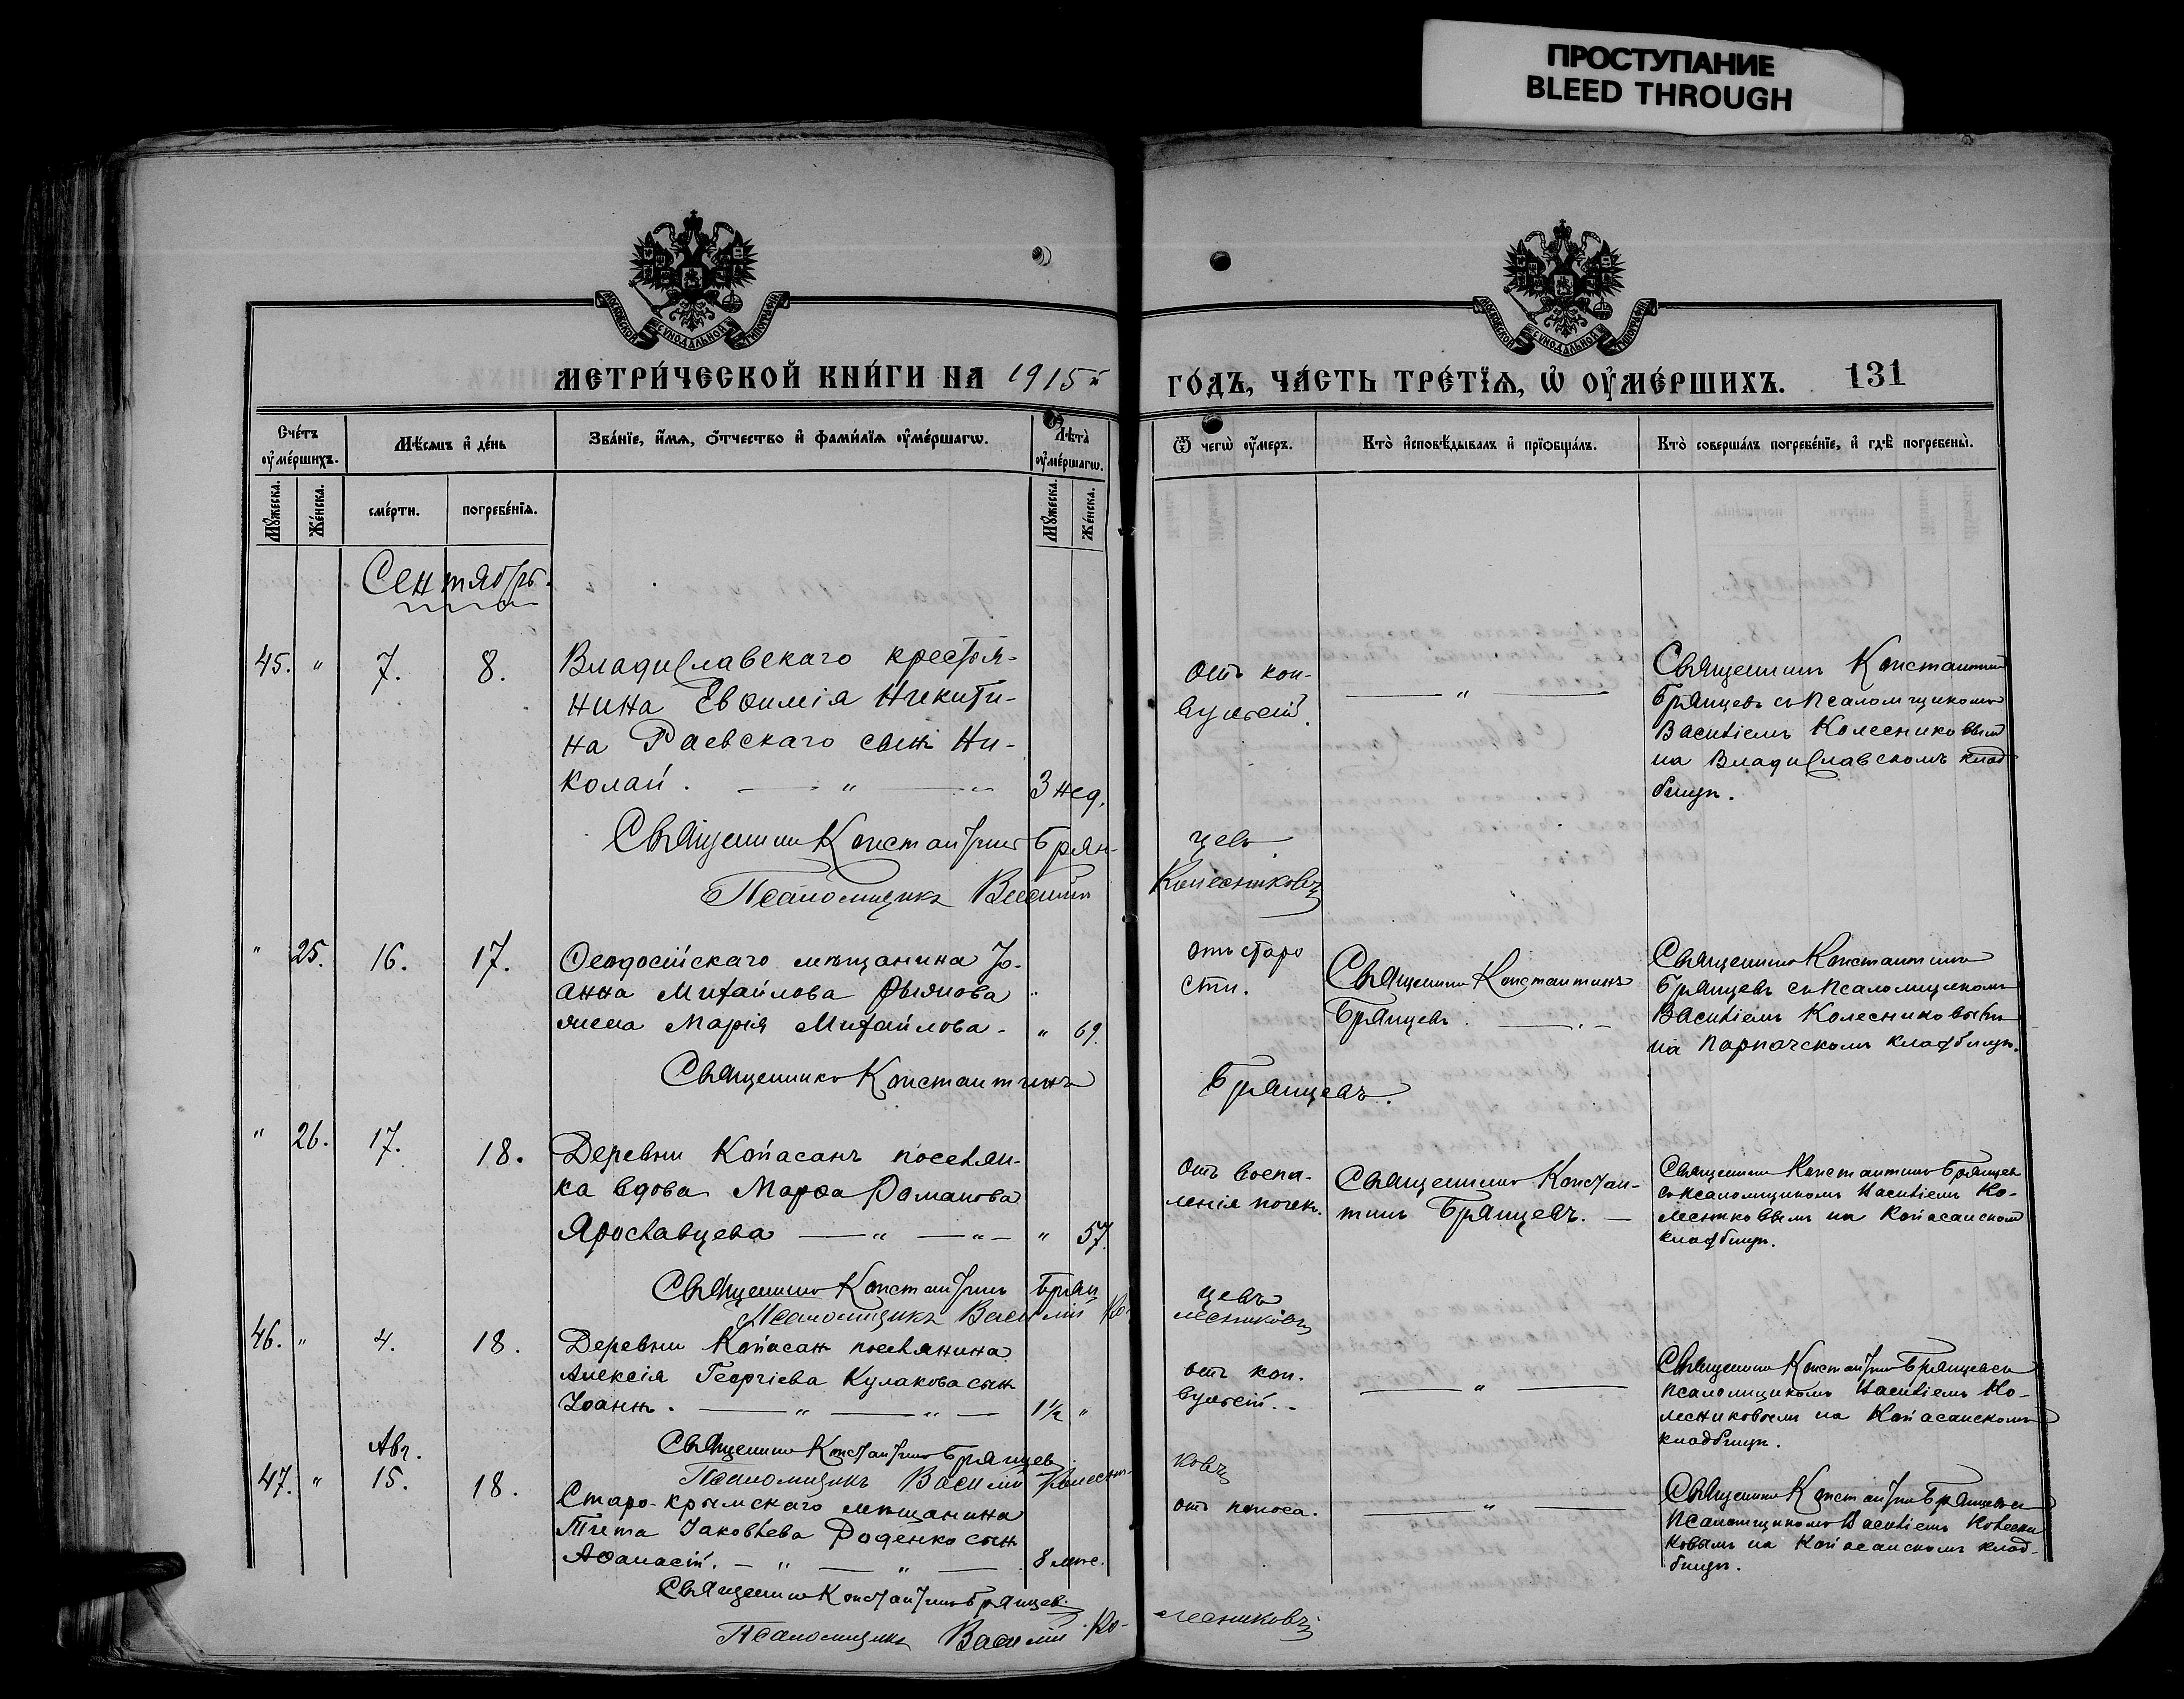 ПРОСТУПАНИЕ
BLEED THROUGH
МОСКОВСКОЙ СѴНОДАЛЬНОЙ ТИПОГРАФІИ
МОСКОВСКОЙ СѴНОДАЛЬНОЙ ТИПОГРАФІИ
МЕТРИ́ЧЕСКОЙ КНИ́ГИ НА 1915й
ГО́ДЪ, ЧА́СТЬ ТРЕ́ТЇѦ, Ѡ҆ ОУ҆МЕ́РШИХЪ. 131
Сче́тъ оу҆ме́ршихъ.
Мѣ́сѧцъ и҆ де́нь
Зва́нїе, и҆́мѧ, ѻ҆́тчество и҆ фами́лїѧ оу҆ме́ршагѡ.
Лѣта̀ оу҆ме́ршагѡ.
Ѿ чегѡ̀ оу҆́меръ.
Кто̀ и҆сповѣ́дывалъ и҆ прїѡбща́лъ.
Кто̀ соверша́лъ погребе́нїе, и҆ гдѣ̀ погребены̀.
Мꙋ́жеска.
Же́нска.
сме́рти.
погребе́нїѧ.
Мꙋ́жеска.
Же́нска.
Сентябрь.
45. " 7. 8. Владиславскаго крестья-
нина Евѳимія Никити-
на Раевскаго сынъ Ни-
колай. — " — 3 нед.
отъ кон-
вульсій.
— " —
Священникъ Константинъ
Брянцевъ съ псаломщикомъ
Василіемъ Колесниковымъ
на Владиславскомъ клад-
бищѣ.
Священникъ Константинъ Брян-
цевъ
Псаломщикъ Василій
Колесниковъ
" 25. 16. 17. Ѳеодосійскаго мѣщанина Іо-
анна Михайлова
жена Марія Михайлова - " 69.
отъ старо
сти.
Священникъ Константинъ
Брянцевъ. —
Священникъ Константинъ
Брянцевъ съ псаломщикомъ
Василіемъ Колесниковымъ
на Парпачскомъ кладбищѣ.
Священникъ Константинъ
Брянцевъ.
" 26. 17. 18. Деревни Копасанъ поселян-
ка вдова Марѳа Романова
Ярославцева — " — " — " 57.
отъ воспа-
ленія почекъ.
Священникъ Констан-
тинъ Брянцевъ. —
Священникъ Константинъ Брянцевъ
съ псаломщикомъ Василіемъ Ко-
лесниковымъ на Копасанскомъ
кладбищѣ.
Священникъ Константинъ Брян
цевъ
Псаломщикъ Василій Ко-
лесниковъ
46. " 4. 18. Деревни Копасан поселянина
Алексія Георгіева Кулакова сынъ
Іоаннъ. — " — " — 1½ "
отъ кон-
вульсій. -
— " —
Священникъ Константинъ Брянцевъ съ
псаломщикомъ Василіемъ Ко-
лесниковымъ на Копасанскомъ
кладбищѣ.
Священникъ Константинъ Брянцевъ
Псаломщикъ Василій Колесни-
ковъ
Авг.
47. " 15. 18. Старо-крымскаго мѣщанина
Тита Іаковлева Роденко сынъ
Аѳанасій. — " — " — 8 мѣс.
отъ поноса.
— " —
Священникъ Константинъ Брянцевъ съ
псаломщикомъ Василіемъ Колесни
ковымъ на Копасанскомъ клад-
бищѣ.
Священникъ Константинъ Брянцевъ
Псаломщикъ Василій Ко-
лесниковъ